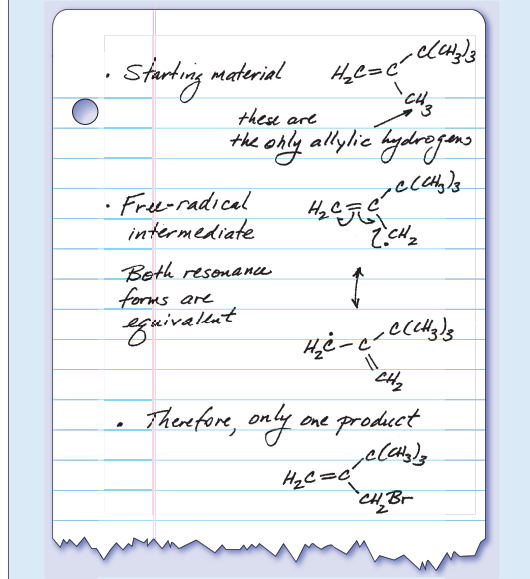 · Starting material
H₂C=C
C(CH₃)₃
CH₃
these are
the only allylic hydrogens
· Free-radical
intermediate
H₂C=C
C(CH₃)₃
·CH₂
Both resonance
forms are
equivalent
H₂Ċ-C
C(CH₃)₃
CH₂
· Therefore, only one product
H₂C=C
C(CH₃)₃
CH₂Br